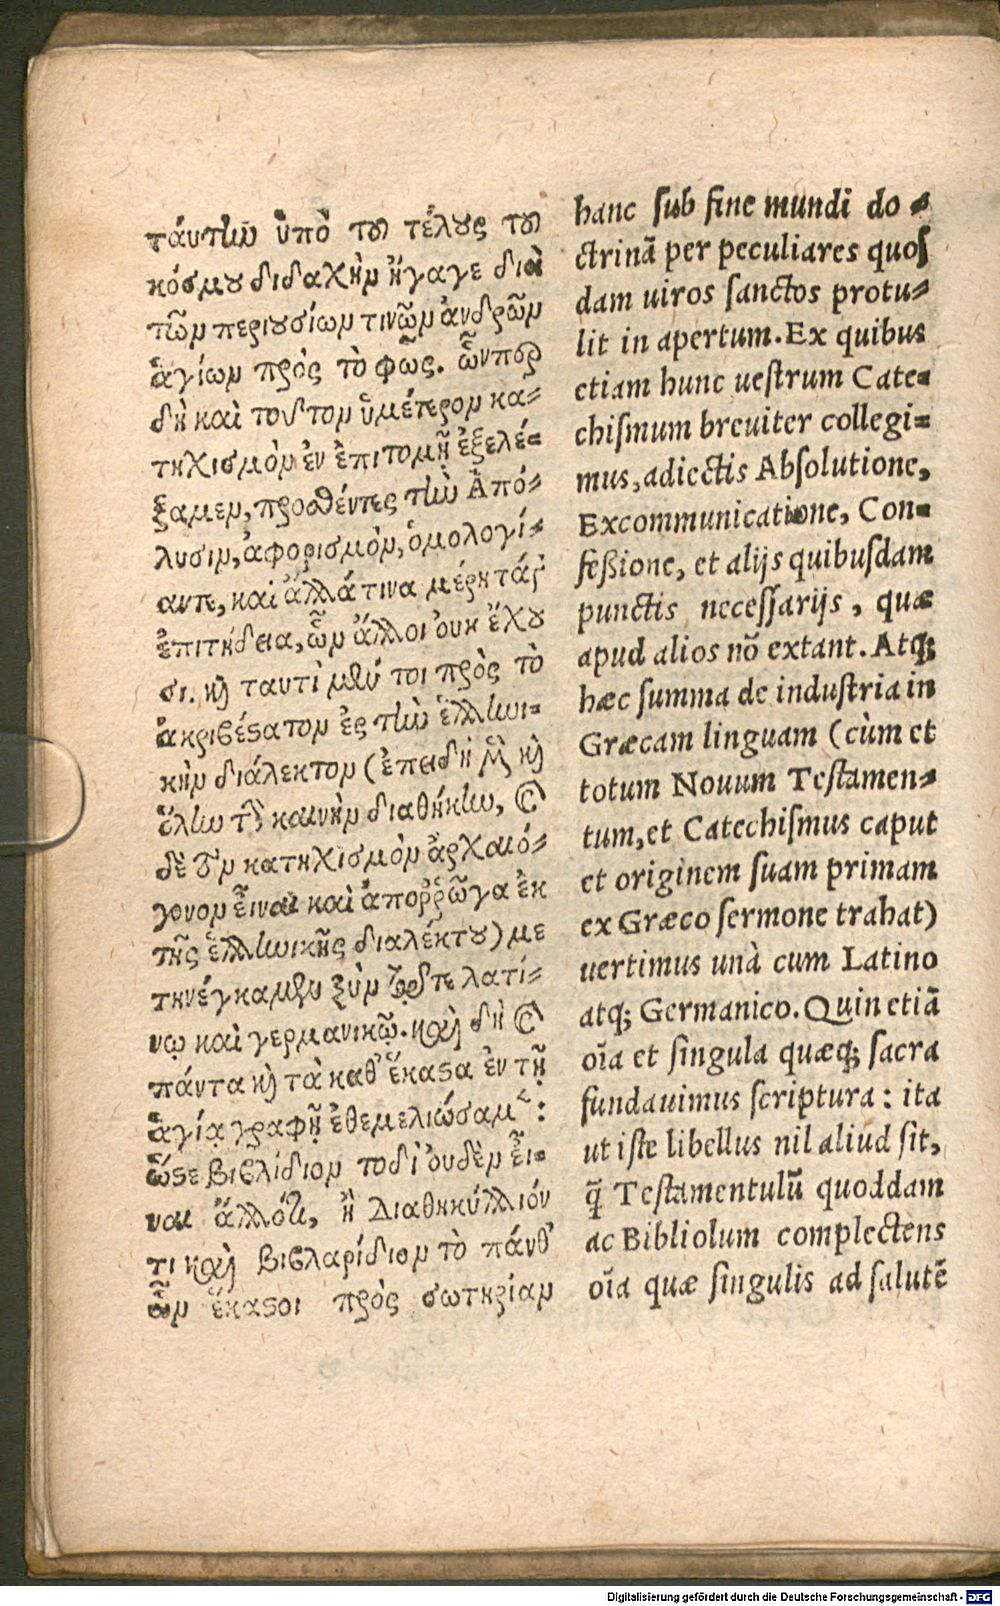 ταύτην ὑπὸ τοῦ τέλους τοῦ
κόσμου διδαχὴν ἤγαγε διὰ
τῶν περιουσίων τινῶν ἀνδρῶν
ἁγίων πρὸς τὸ φῶς. ὧνπερ
δὴ καὶ τοῦτον ὑμέτερον κα-
τηχισμὸν ἐν ἐπιτομῇ ἐξελέ-
ξαμεν, προσθέντες τὴν Ἀπό-
λυσιν, ἀφορισμὸν, ὁμολογί-
αντε, καὶ ἄλλάτινα μέρη τάς
ἐπιτήδεια, ὧν ἄλλοι ὀυκ ἔχου
σι. καὶ ταυτὶ μὲν τοι πρὸς τὸ
ἀκριβέστατον ἐς τὴν ἑλληνι-
κὴν διάλεκτον (ἐπειδὴ καὶ
ὅλην τὴν καινὴν διαθήκην,
δὲ τὸν κατηχισμὸν ἀρχαιό-
γονον εἶναι καὶ ἀποῤῥῶγα ἐκ
τῆς ἑλληνικῆς διαλέκτου) με
τηνέγκαμεν ξὺν λατί-
νῳ καὶ γερμανικῷ. καὶ δὴ
πάντα καὶ τὰ καθ' ἕκαστα ἐν τῇ
ἁγίᾳ γραφῇ ἐθεμελιώσαμεν:
ὥστε βιβλίδιον τοδὶ ὀυδὲν εἶ-
ναι ἄλλότι, ἢ Διαθηκύλλιόν
τι καὶ βιβλαρίδιον τὸ πάνθ'
ὧν ἕκαστοι πρὸς σωτηρίαν
hanc sub fine mundi do-
ctrinā per peculiares quos
dam uiros sanctos protu-
lit in apertum. Ex quibus
etiam hunc uestrum Cate-
chismum breuiter collegi-
mus, adiectis Absolutione,
Excommunicatione, Con-
feßione, et alijs quibusdam
punctis necessarijs, quæ
apud alios nō extant. Atq;
hæc summa de industria in
Græcam linguam (cùm et
totum Nouum Testamen-
tum, et Catechismus caput
et originem suam primam
ex Græco sermone trahat)
uertimus unà cum Latino
atq; Germanico. Quin etiā
oīa et singula quæq; sacra
fundauimus scriptura: ita
ut iste libellus nil aliud sit,
q̄ Testamentulū quoddam
ac Bibliolum complectens
oīa quæ singulis ad salutē
Digitalisierung gefördert durch die Deutsche Forschungsgemeinschaft - DFG